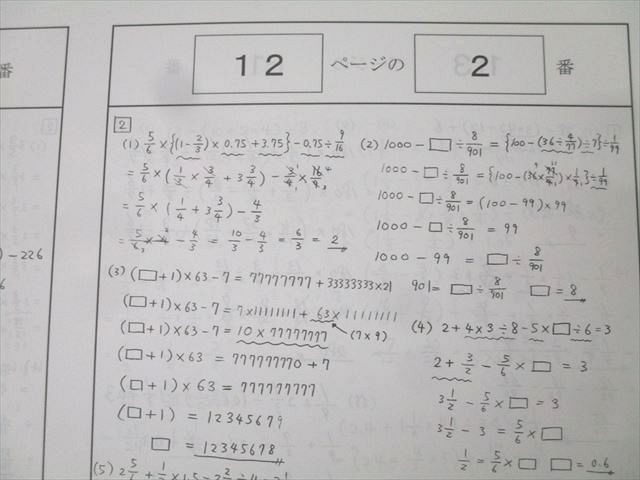 番
12 ページの 2 番
) - 226
2
(1) 5/6 × {(1 - 2/3) × 0.75 + 3.75} - 0.75 ÷ 9/16
= 5/6 × (1/3 × 3/4 + 3 3/4) - 3/4 × 16/9
= 5/6 × (1/4 + 3 3/4) - 4/3
= 5/6 × 4 - 4/3 = 10/3 - 4/3 = 6/3 = 2
(2) 1000 - □ ÷ 8/901 = {100 - (36 ÷ 4/77) ÷ 7} ÷ 1/99
1000 - □ ÷ 8/901 = {100 - (36 × 77/4) × 1/7} ÷ 1/99
1000 - □ ÷ 8/901 = (100 - 99) × 99
1000 - □ ÷ 8/901 = 99
1000 - 99 = □ ÷ 8/901
901 = □ ÷ 8/901 □ = 8
(3) (□ + 1) × 63 - 7 = 77777777 + 33333333 × 21
(□ + 1) × 63 - 7 = 7 × 11111111 + 63 × 11111111
(□ + 1) × 63 - 7 = 10 × 77777777 (7 × 9)
(□ + 1) × 63 = 777777770 + 7
(□ + 1) × 63 = 777777777
(□ + 1) = 12345679
□ = 12345678
(4) 2 + 4 × 3 ÷ 8 - 5 × □ ÷ 6 = 3
2 + 3/2 - 5/6 × □ = 3
3 1/2 - 5/6 × □ = 3
3 1/2 - 3 = 5/6 × □
1/2 = 5/6 × □ □ = 0.6
(5) 2 5/6 + 1/2 × 1.5 - 2 2/